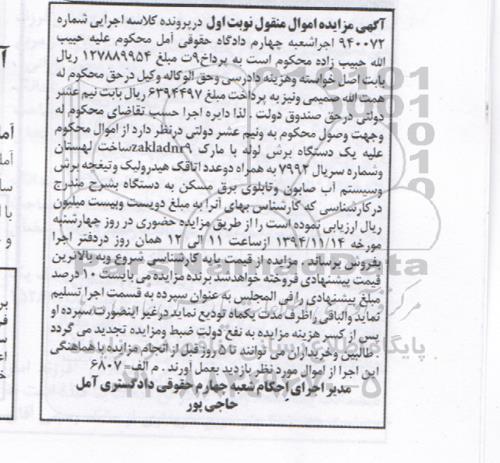 آگهی مزایده اموال منقول نوبت اول درپرونده کلاسه اجرایی شماره
۹۴۰۰۷۲ اجراشعبه چهارم دادگاه حقوقی آمل محکوم علیه حبیب
الله حبیب زاده محکوم است به پرداخ۹ت مبلغ ۱۲۷۸۸۹۹۵۴ ریال
بابت اصل خواسته وهزینه دادرسی وحق الوکاله وکیل درحق محکوم له
همت الله صمیمی ونیز به پرداخت مبلغ ۶۳۹۴۴۹۷ ریال بابت نیم عشر
دولتی درحق صندوق دولت . لذا دایره اجرا حسب تقاضای محکوم له
وجهت وصول محکوم به ونیم عشر دولتی درنظر دارد از اموال محکوم
علیه یک دستگاه برش لوله با مارک zakladnr۹ساخت لهستان
وشماره سریال ۷۹۹۲ به همراه دوعدد اتاقک هیدرولیک وتیغچه برش
وسیستم آب صابون وتابلوی برق مسکن به دستگاه بشرح مندرج
درکارشناسی که کارشناس بهای آنرا به مبلغ دویست وبیست میلیون
ریال ارزیابی نموده است را از طریق مزایده حضوری در روز چهارشنبه
مورخه ۱۳۹۴/۱۱/۱۴ ازساعت ۱۱ الی ۱۲ همان روز دردفتر اجرا
بفروش برساند . مزایده از قیمت پایه کارشناسی شروع وبه بالاترین
قیمت پیشنهادی فروخته خواهدشد برنده مزایده می بایست ۱۰ درصد
مبلغ پیشنهادی را فی المجلس به عنوان سپرده به قسمت اجرا تسلیم
نماید والباقی راظرف مدت یکماه تودیع نماید درغیر اینصورت سپرده او
پس از کسر هزینه مزایده به نفع دولت ضبط ومزایده تجدید می گردد
. طالبین وخریداران می توانند تا ۵ روز قبل از انجام مزایده با هماهنگی
این اجرا از اموال مورد نظر بازدید بعمل آورند . م الف- ۶۸۰۷
مدیر اجرای احکام شعبه چهارم حقوقی دادگستری آمل
حاجی پور